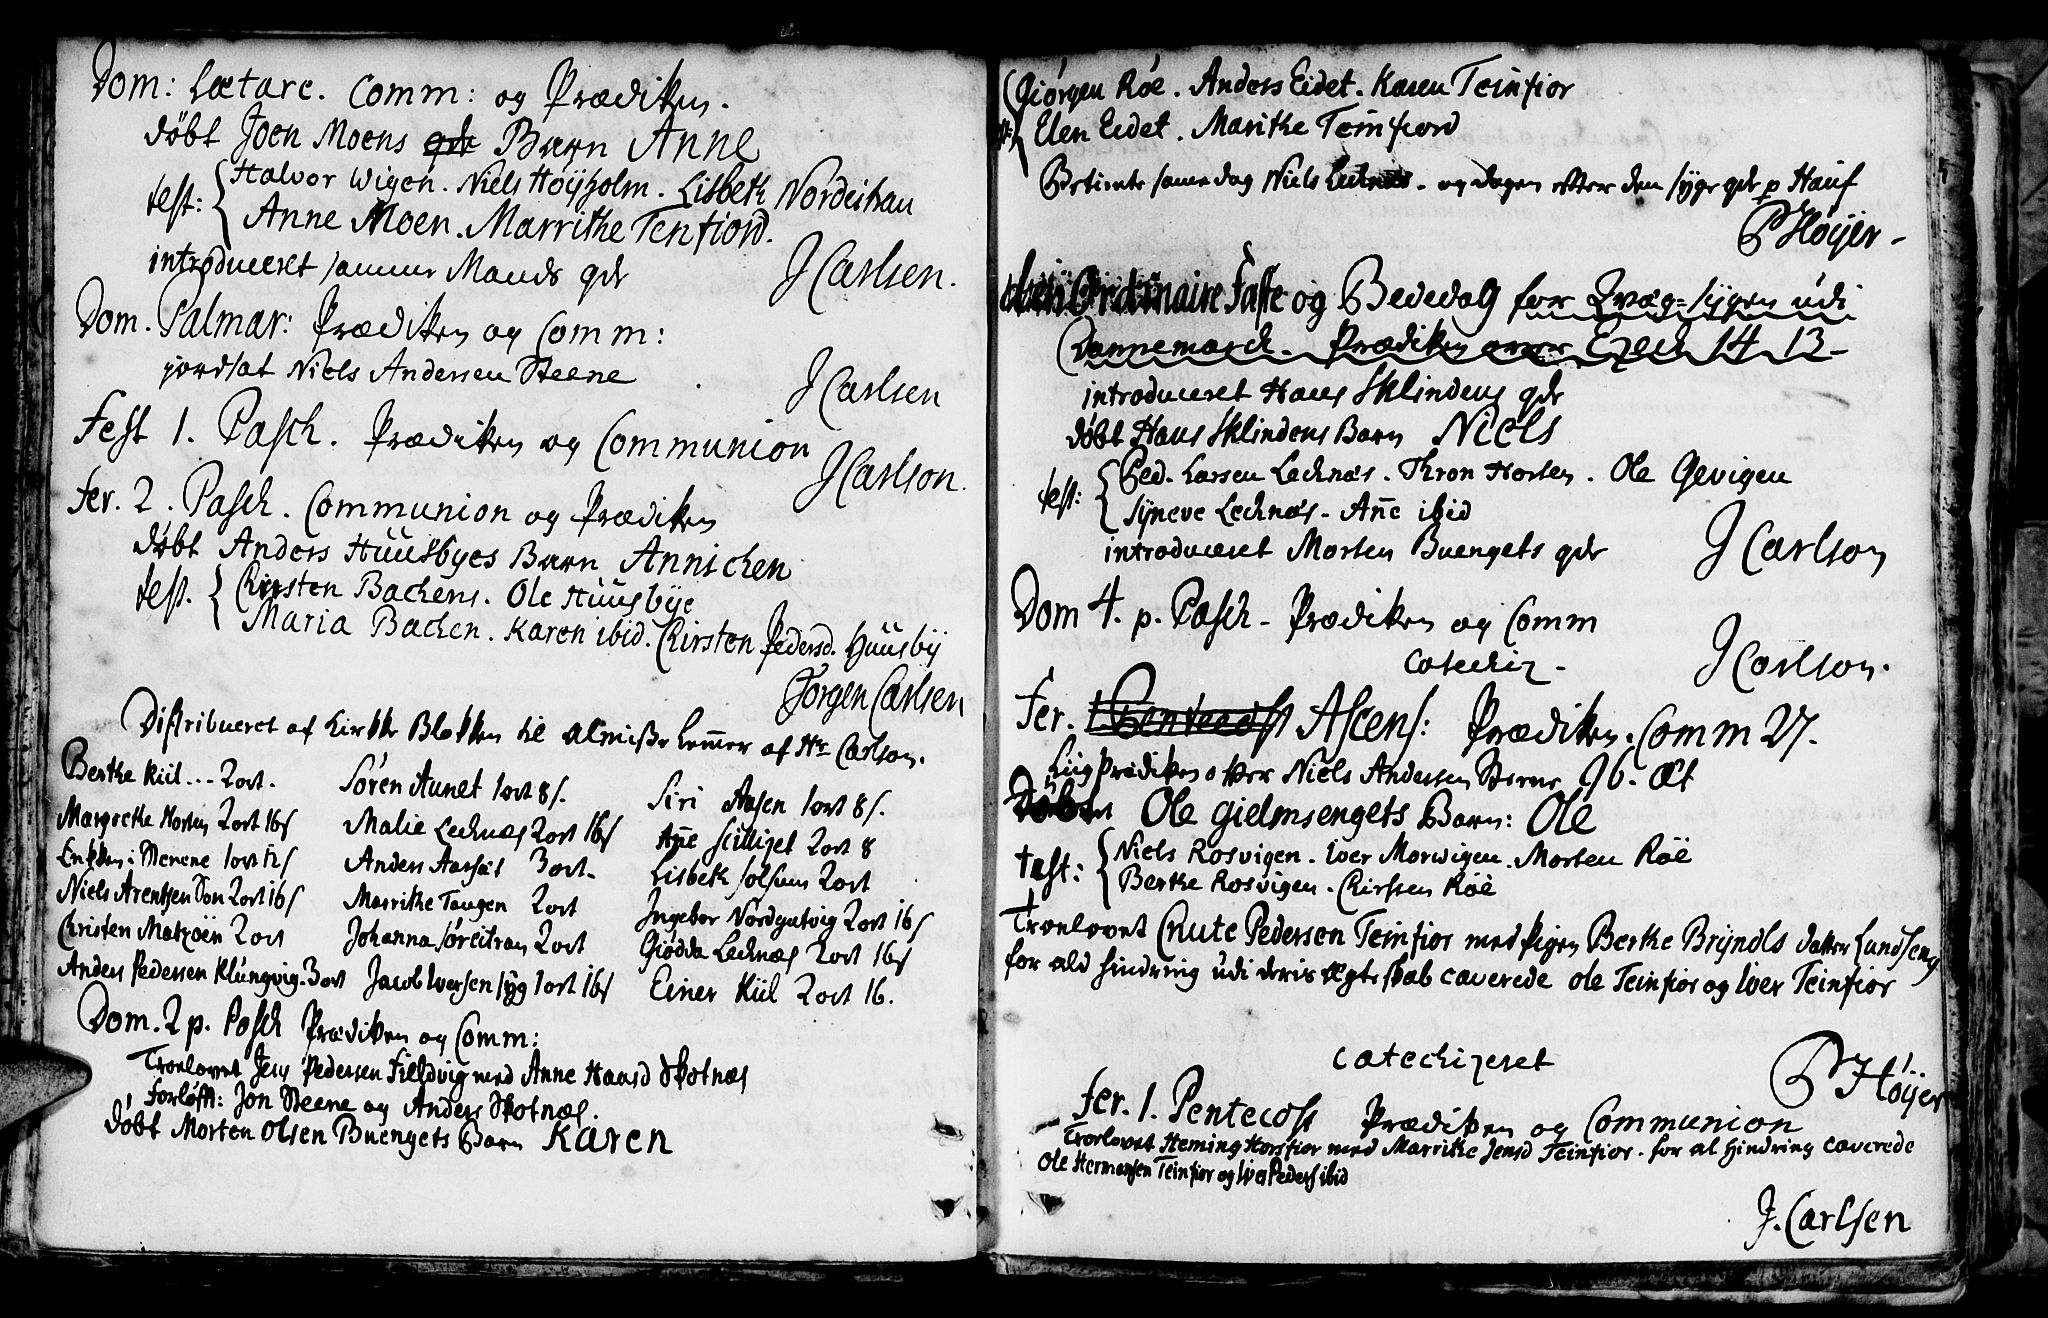 Dom: Lætare. Comm: og Prædiken.
døbt Joen Moens Barn Anne
test: Halvor Wigen. Niels Høyholm. Lisbeth Nordeihau
Anne Moen. Marrithe Tenfiord.
introduceret samme Mands qde
J Carlsen.
Dom. Palmar: Prædiken og Comm:
jordsat Niels Andersen Steene
J Carlsen
Fest 1. Pasch. Prædiken og Communion
J Carlson.
Fer. 2. Pasch. Communion og Prædiken
døbt Anders Huusbyes Barn Annichen
test. Kirsten Bachens. Ole Huusbye
Maria Bachen. Karen ibid. Kirsten Pedersd. Huusby
Jørgen Carlsen
Distribueret af Kirke Blokken til Almisse Lemmer af Hr Carlson.
Berthe Kiil... 2 ort. Søren Aunet 1 ort 8 s. Siri Aasen 1 ort 8 s.
Margrethe Horten 2 ort 16 s Malie Lechnæs 2 ort 16 s Añe 2 ort 8
Enken i Steene 1 ort Anders 3 ort. Lisbeth Solsum 2 ort
Niels Arentsen Søn 2 ort 16 s Marrithe Taugen 2 ort Ingebor 2 ort 16 s
Christen Matzøen 2 ort Johanna Søreitran 2 ort Giødda Lechnæs 2 ort 16 s
Anders Pedersen Klungvig. 3 ort Jacob Iversen syg 1 ort 16 s Einer Kiil 2 ort 16.
Dom. 2 p. Pasch Prædiken og Comm:
Trolovet Jens Pedersen med Anne Hansd Skotnæs
Forløfft: Jon Steene og Anders Skotnæs.
døbt Morten Olsen Buengets Barn Karen
Giørgen Røe. Anders Eidet. Karen Teinfior
Elen Eidet. Marithe Teinfiord
Betient same dag Niels Lechnæs. og dagen efter den syge qde p Hauf
P Høyer
Ordinaire Faste og Bededag for Qvæg=sygen udi
Dannemarck. Prædiken over Ezech 14 13
introduceret Hans Sklindens qde
døbt Hans Sklindens Barn Niels
test: Ped. Larsen Lechnæs. Thron Horten. Ole Gevigen
Syneve Lechnæs. Añe ibid
introduceret Morten Buengets qde
J Carlson
Dom 4. p. Pasch. Prædiken og Comm
Catechiz.
J Carlson.
Fer. 1 Pentecost Ascens: Prædiken. Comm 27.
Liig Prædiken over Niels Andersen Steene 96. æt
Døbt Ole Gielmsengets Barn: Ole
test: Niels Rosvigen. Iver Morwigen. Morten Røe
Berthe Rosvigen. Kirsten Røe
Trolovet Cnute Pedersen Teinfior med Pigen Berthe Bryndls datter Lundseng
for ald hindring udi deris Ægteskab caverede Ole Teinfior og Iver Teinfior
Catechizeret
P Høyer
Fer. 1. Pentecost Prædiken og Communion
Trolovet Heming Horsfior med Marrithe Jensd Teinfior. for al Hindring caverede
Ole Hermansen Teinfior og Iver Peders ibid
J. Carlsen